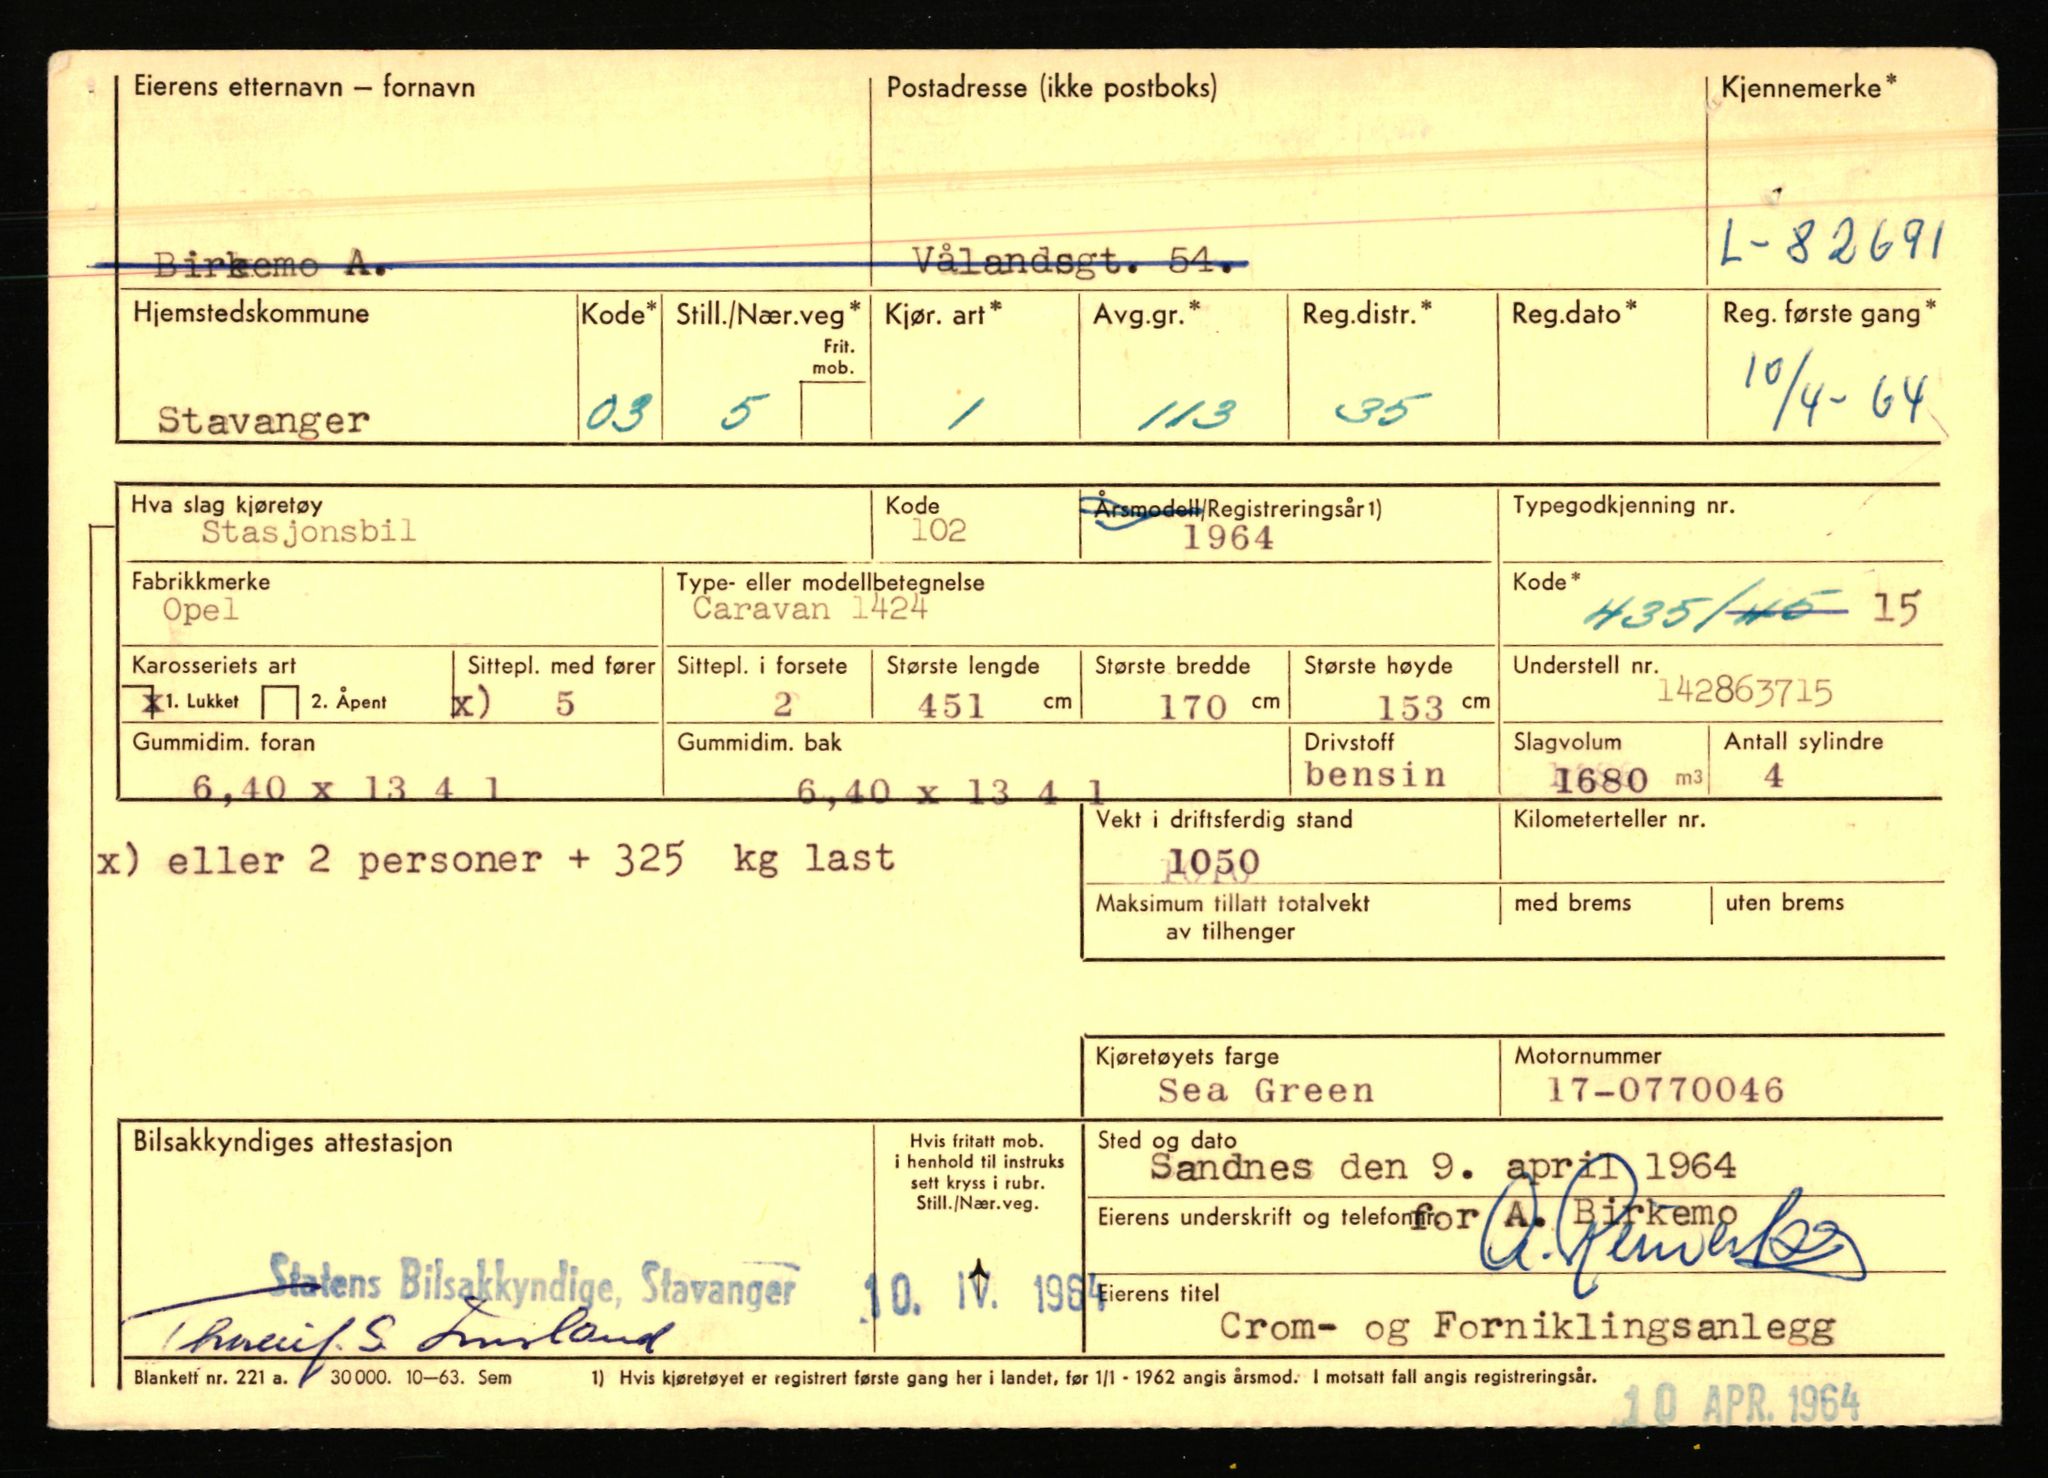 Eierens etternavn — fornavn Postadresse (ikke postboks) Kjennemerke*
Birkemo A. Vålandsgt. 54. L-82691
Hjemstedskommune Kode* Still./Nær.veg* Kjør. art* Avg.gr.* Reg.distr.* Reg.dato* Reg. første gang*
Frit.
mob.
Stavanger 03 5 1 113 35 10/4-64
Hva slag kjøretøy Kode Årsmodell/Registreringsår 1) Typegodkjenning nr.
Stasjonsbil 102 1964
Fabrikkmerke Type- eller modellbetegnelse Kode*
Opel Caravan 1424 435/45 15
Karosseriets art Sittepl. med fører Sittepl. i forsete Største lengde Største bredde Største høyde Understell nr.
x 1. Lukket 2. Åpent x) 5 2 451 cm 170 cm 153 cm 142863715
Gummidim. foran Gummidim. bak Drivstoff Slagvolum Antall sylindre
6,40 x 13 4 1 6,40 x 13 4 1 bensin 1680 m3 4
Vekt i driftsferdig stand Kilometerteller nr.
x) eller 2 personer + 325 kg last 1050
Maksimum tillatt totalvekt med brems uten brems
av tilhenger
Kjøretøyets farge Motornummer
Sea Green 17-0770046
Bilsakkyndiges attestasjon Hvis fritatt mob.
i henhold til instruks
sett kryss i rubr.
Still./Nær.veg.
Sted og dato
Sandnes den 9. april 1964
Eierens underskrift og telefonnr. for A. Birkemo
Statens Bilsakkyndige, Stavanger 10. IV. 1964
Eierens titel
Crom- og Forniklingsanlegg
Blankett nr. 221 a. 30 000. 10—63. Sem 1) Hvis kjøretøyet er registrert første gang her i landet, før 1/1 - 1962 angis årsmod. I motsatt fall angis registreringsår.
10 APR. 1964